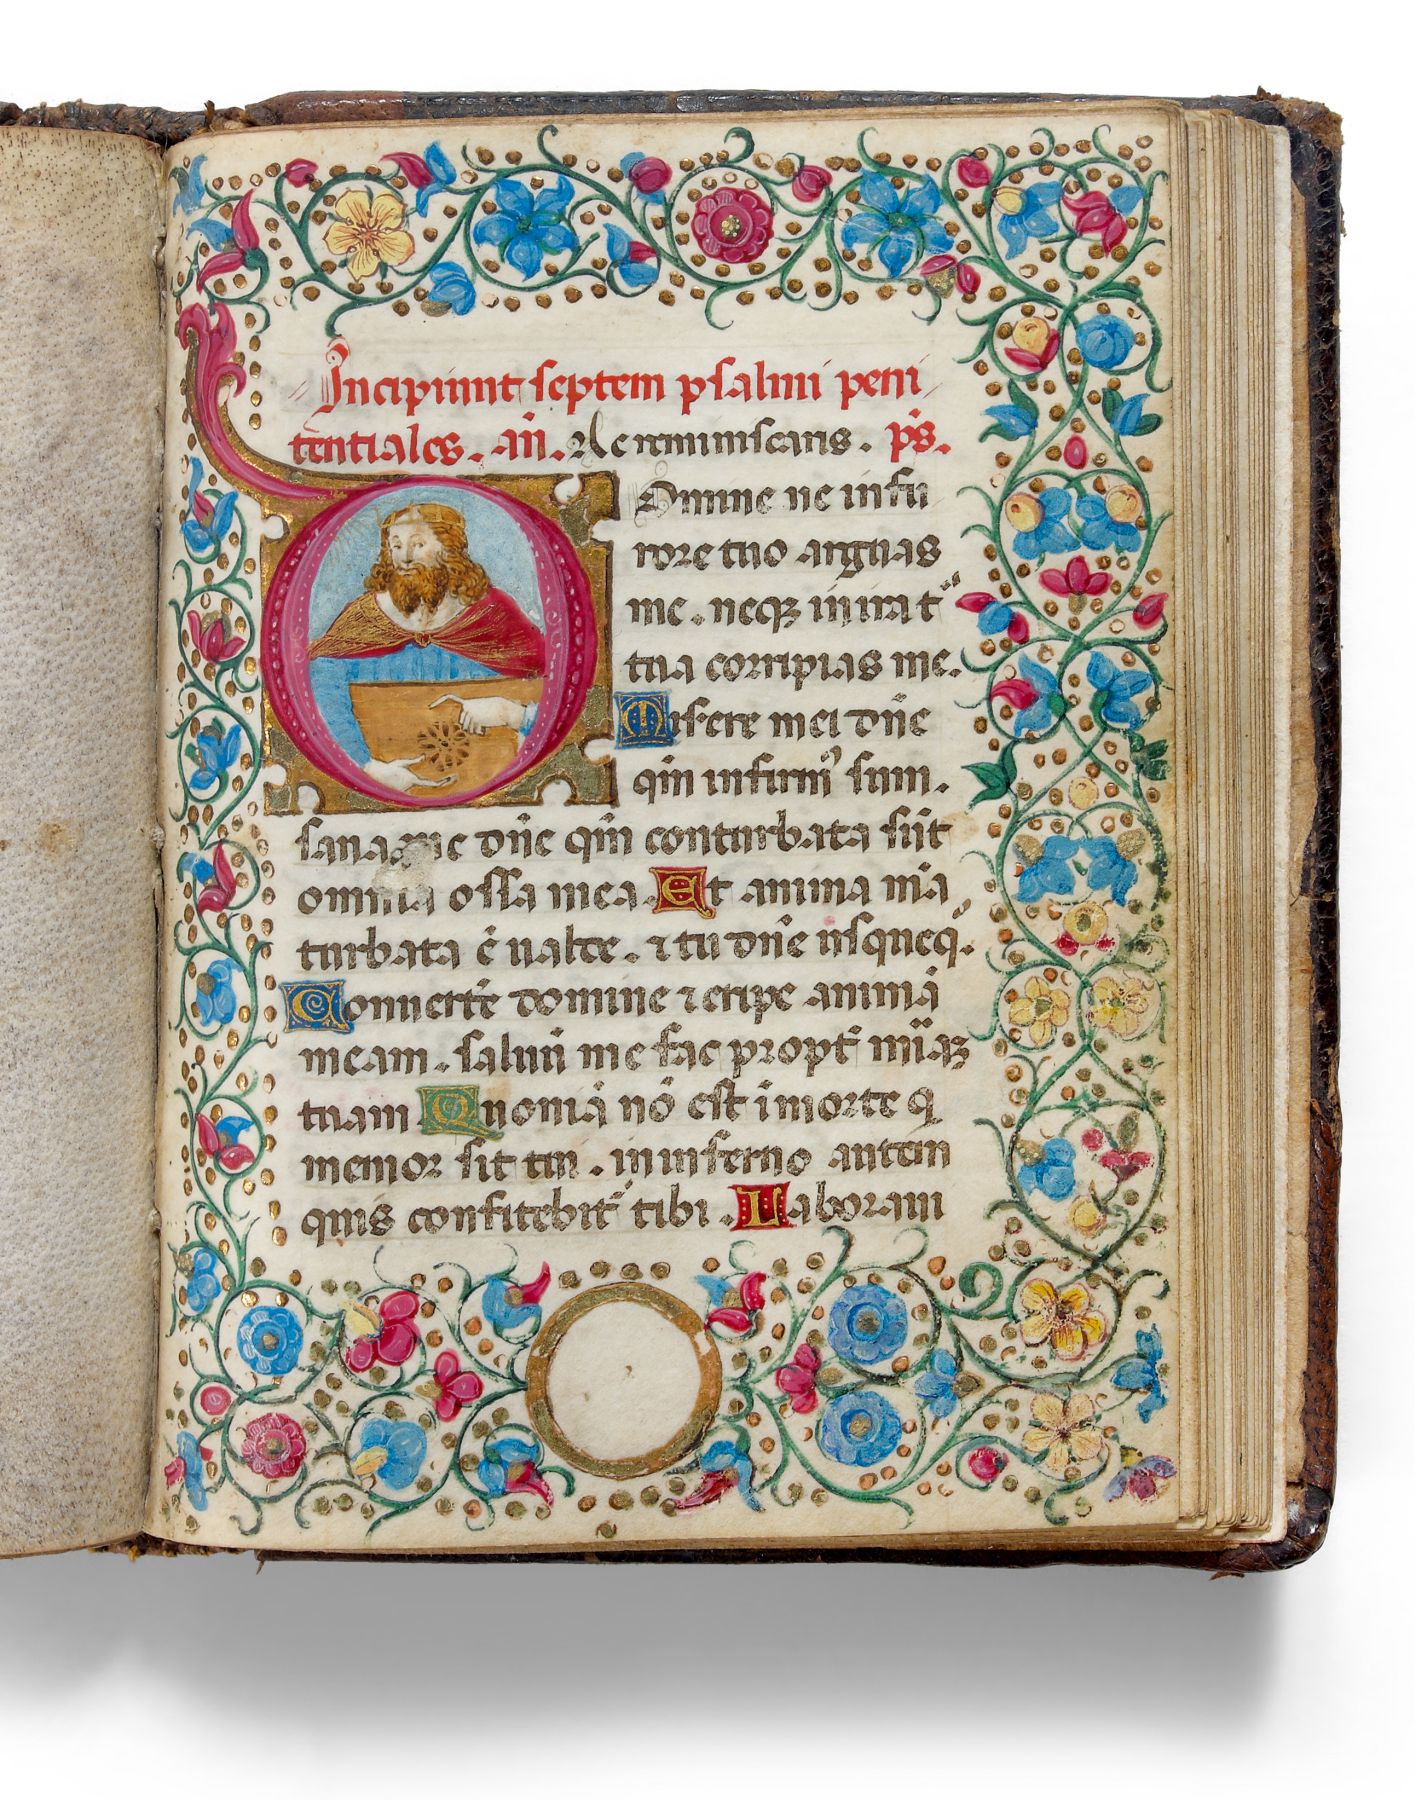 Incipiunt septem psalmi peni
tentiales. añ. Ne reminiscaris. ps̃.
Domine ne in fu
rore tuo arguas
me. neqꝫ in ira t̃
tua corripias me.
Misere mei dñe
qm̃ infirm᷒ sum.
sana me dñe qm̃ conturbata sũt
omnia ossa mea. Et anima m̃a
turbata ẽ ualde. ⁊ tu dñe usqueq̃.
Conuerte domine ⁊ eripe animã
meam. saluũ me fac propt̃ miãꝫ
tuam Quoniã nõ est ĩ morte q̃
memor sit tui. in inferno autem
quis confitebit̃ tibi. Laboraui